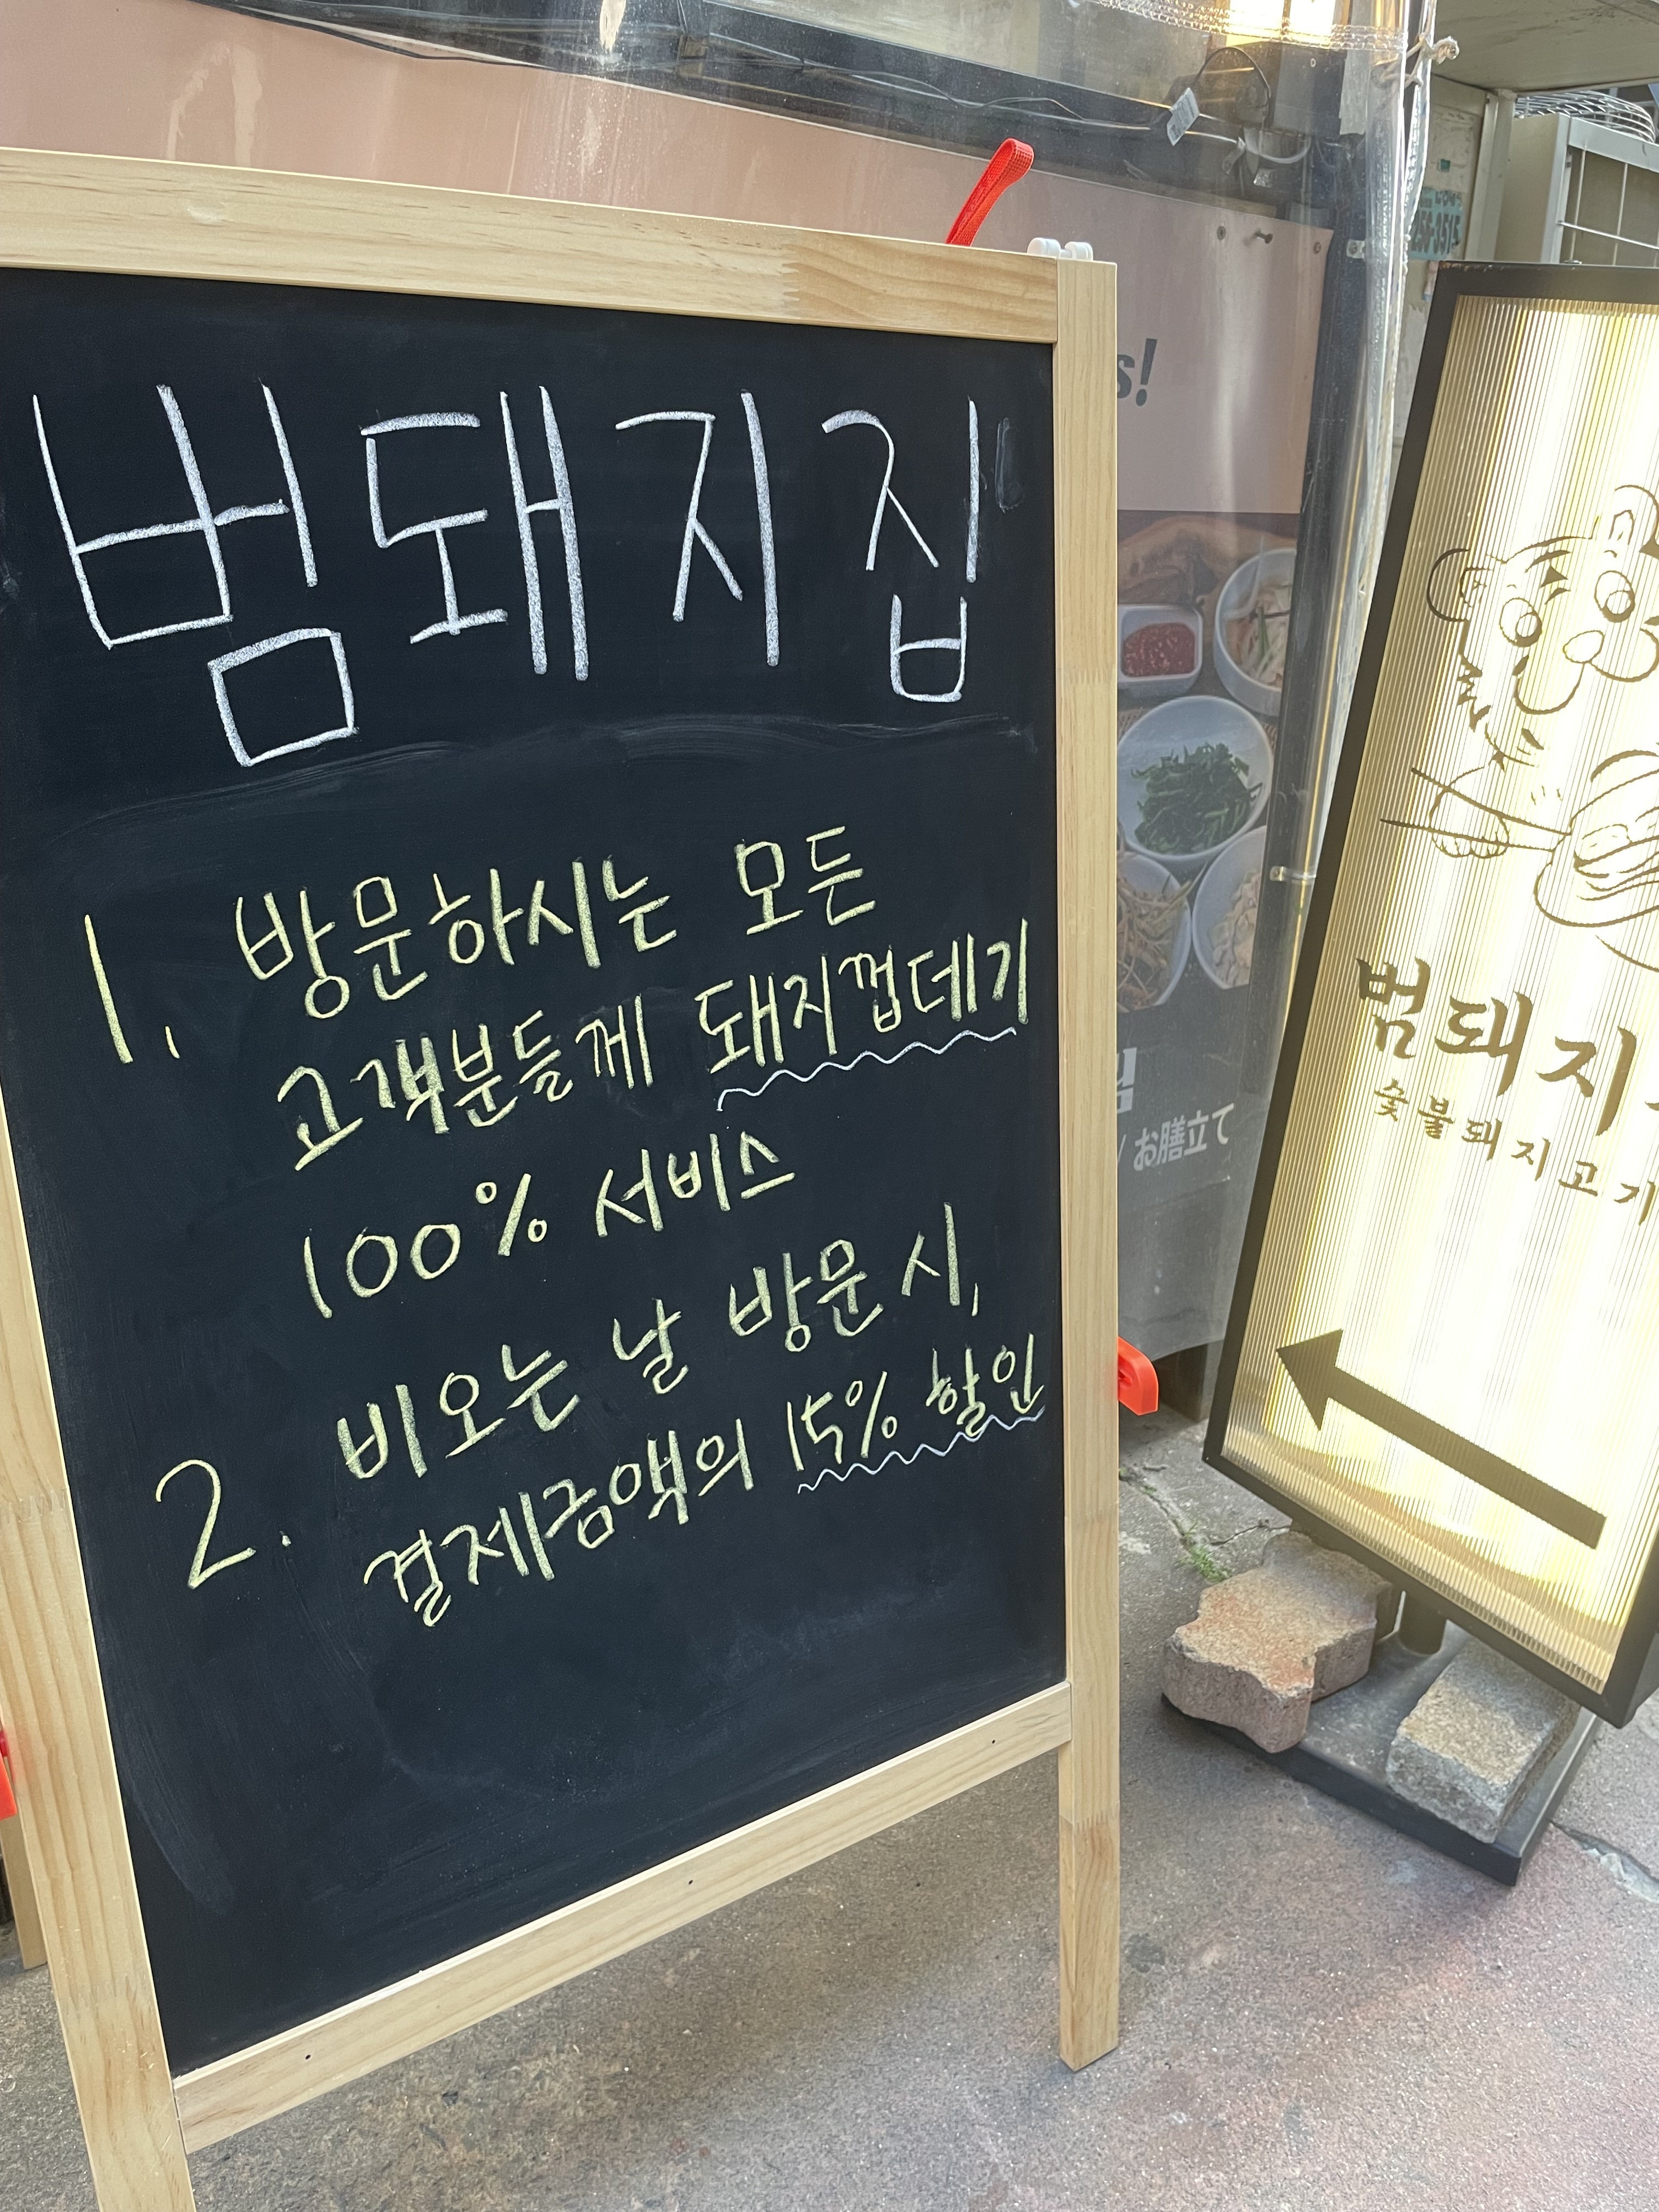 범돼지집
1. 방문하시는 모든
고객분들께 돼지껍데기
100% 서비스
2. 비오는 날 방문 시,
결제금액의 15% 할인
s!
/ お膳立て
범돼지
숯불돼지고기